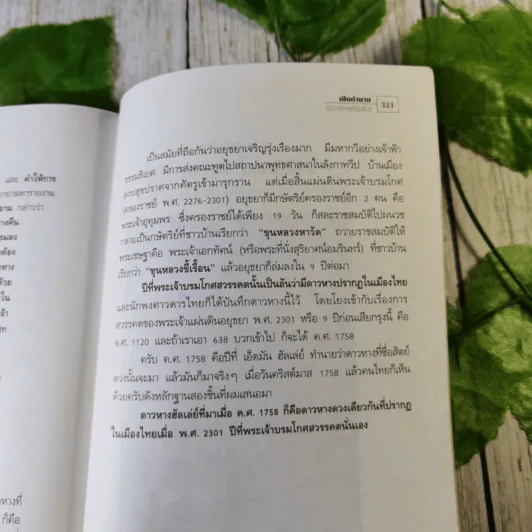 และ คำให้การ
กล่าวว่า
เปิดตำนาน
321
เป็นสมัยที่ถือกันว่าอยุธยาเจริญรุ่งเรืองมาก มีมหากวีอย่างเจ้าฟ้า
ธรรมธิเบศ มีการส่งคณะทูตไปสถาปนาพุทธศาสนาในลังกาทวีป บ้านเมือง
สงบสุขปราศจากศัตรูเข้ามารุกราน แต่เมื่อสิ้นแผ่นดินพระเจ้าบรมโกศ
(ครองราชย์ พ.ศ. 2276-2301) อยุธยาก็มีกษัตริย์ครองราชย์อีก 2 คน คือ
พระเจ้าอุทุมพร ซึ่งครองราชย์ได้เพียง 19 วัน ก็สละราชสมบัติไปผนวช
กลายเป็นกษัตริย์ที่ชาวบ้านเรียกว่า "ขุนหลวงหาวัด" ถวายราชสมบัติให้
พระเชษฐาคือ พระเจ้าเอกทัศน์ (หรือพระที่นั่งสุริยาศน์อมรินทร์) ที่ชาวบ้าน
เรียกว่า "ขุนหลวงขี้เรื้อน" แล้วอยุธยาก็ล่มลงใน 9 ปีต่อมา
ปีที่พระเจ้าบรมโกศสวรรคตนั้นเป็นอันว่ามีดาวหางปรากฏในเมืองไทย
และนักพงศาวดารไทยก็ได้บันทึกดาวหางนี้ไว้ โดยโยงเข้ากับเรื่องการ
สวรรคตของพระเจ้าแผ่นดินอยุธยา พ.ศ. 2301 หรือ 9 ปีก่อนเสียกรุงนี้ คือ
จ.ศ. 1120 และถ้าเราเอา 638 บวกเข้าไป ก็จะได้ ค.ศ. 1758
ครับ ค.ศ. 1758 คือปีที่ เอ็ดมัน ฮัลเลย์ ทำนายว่าดาวหางที่ซื่อสัตย์
ดวงนั้นจะมา แล้วมันก็มาจริงๆ เมื่อวันคริสต์มาส 1758 แล้วคนไทยก็เห็น
ด้วยครับดังหลักฐานสองชิ้นที่ผมเสนอมา
ดาวหางฮัลเลย์ที่มาเมื่อ ค.ศ. 1758 ก็คือดาวหางดวงเดียวกันที่ปรากฏ
ในเมืองไทยเมื่อ พ.ศ. 2301 ปีที่พระเจ้าบรมโกศสวรรคตนั่นเอง